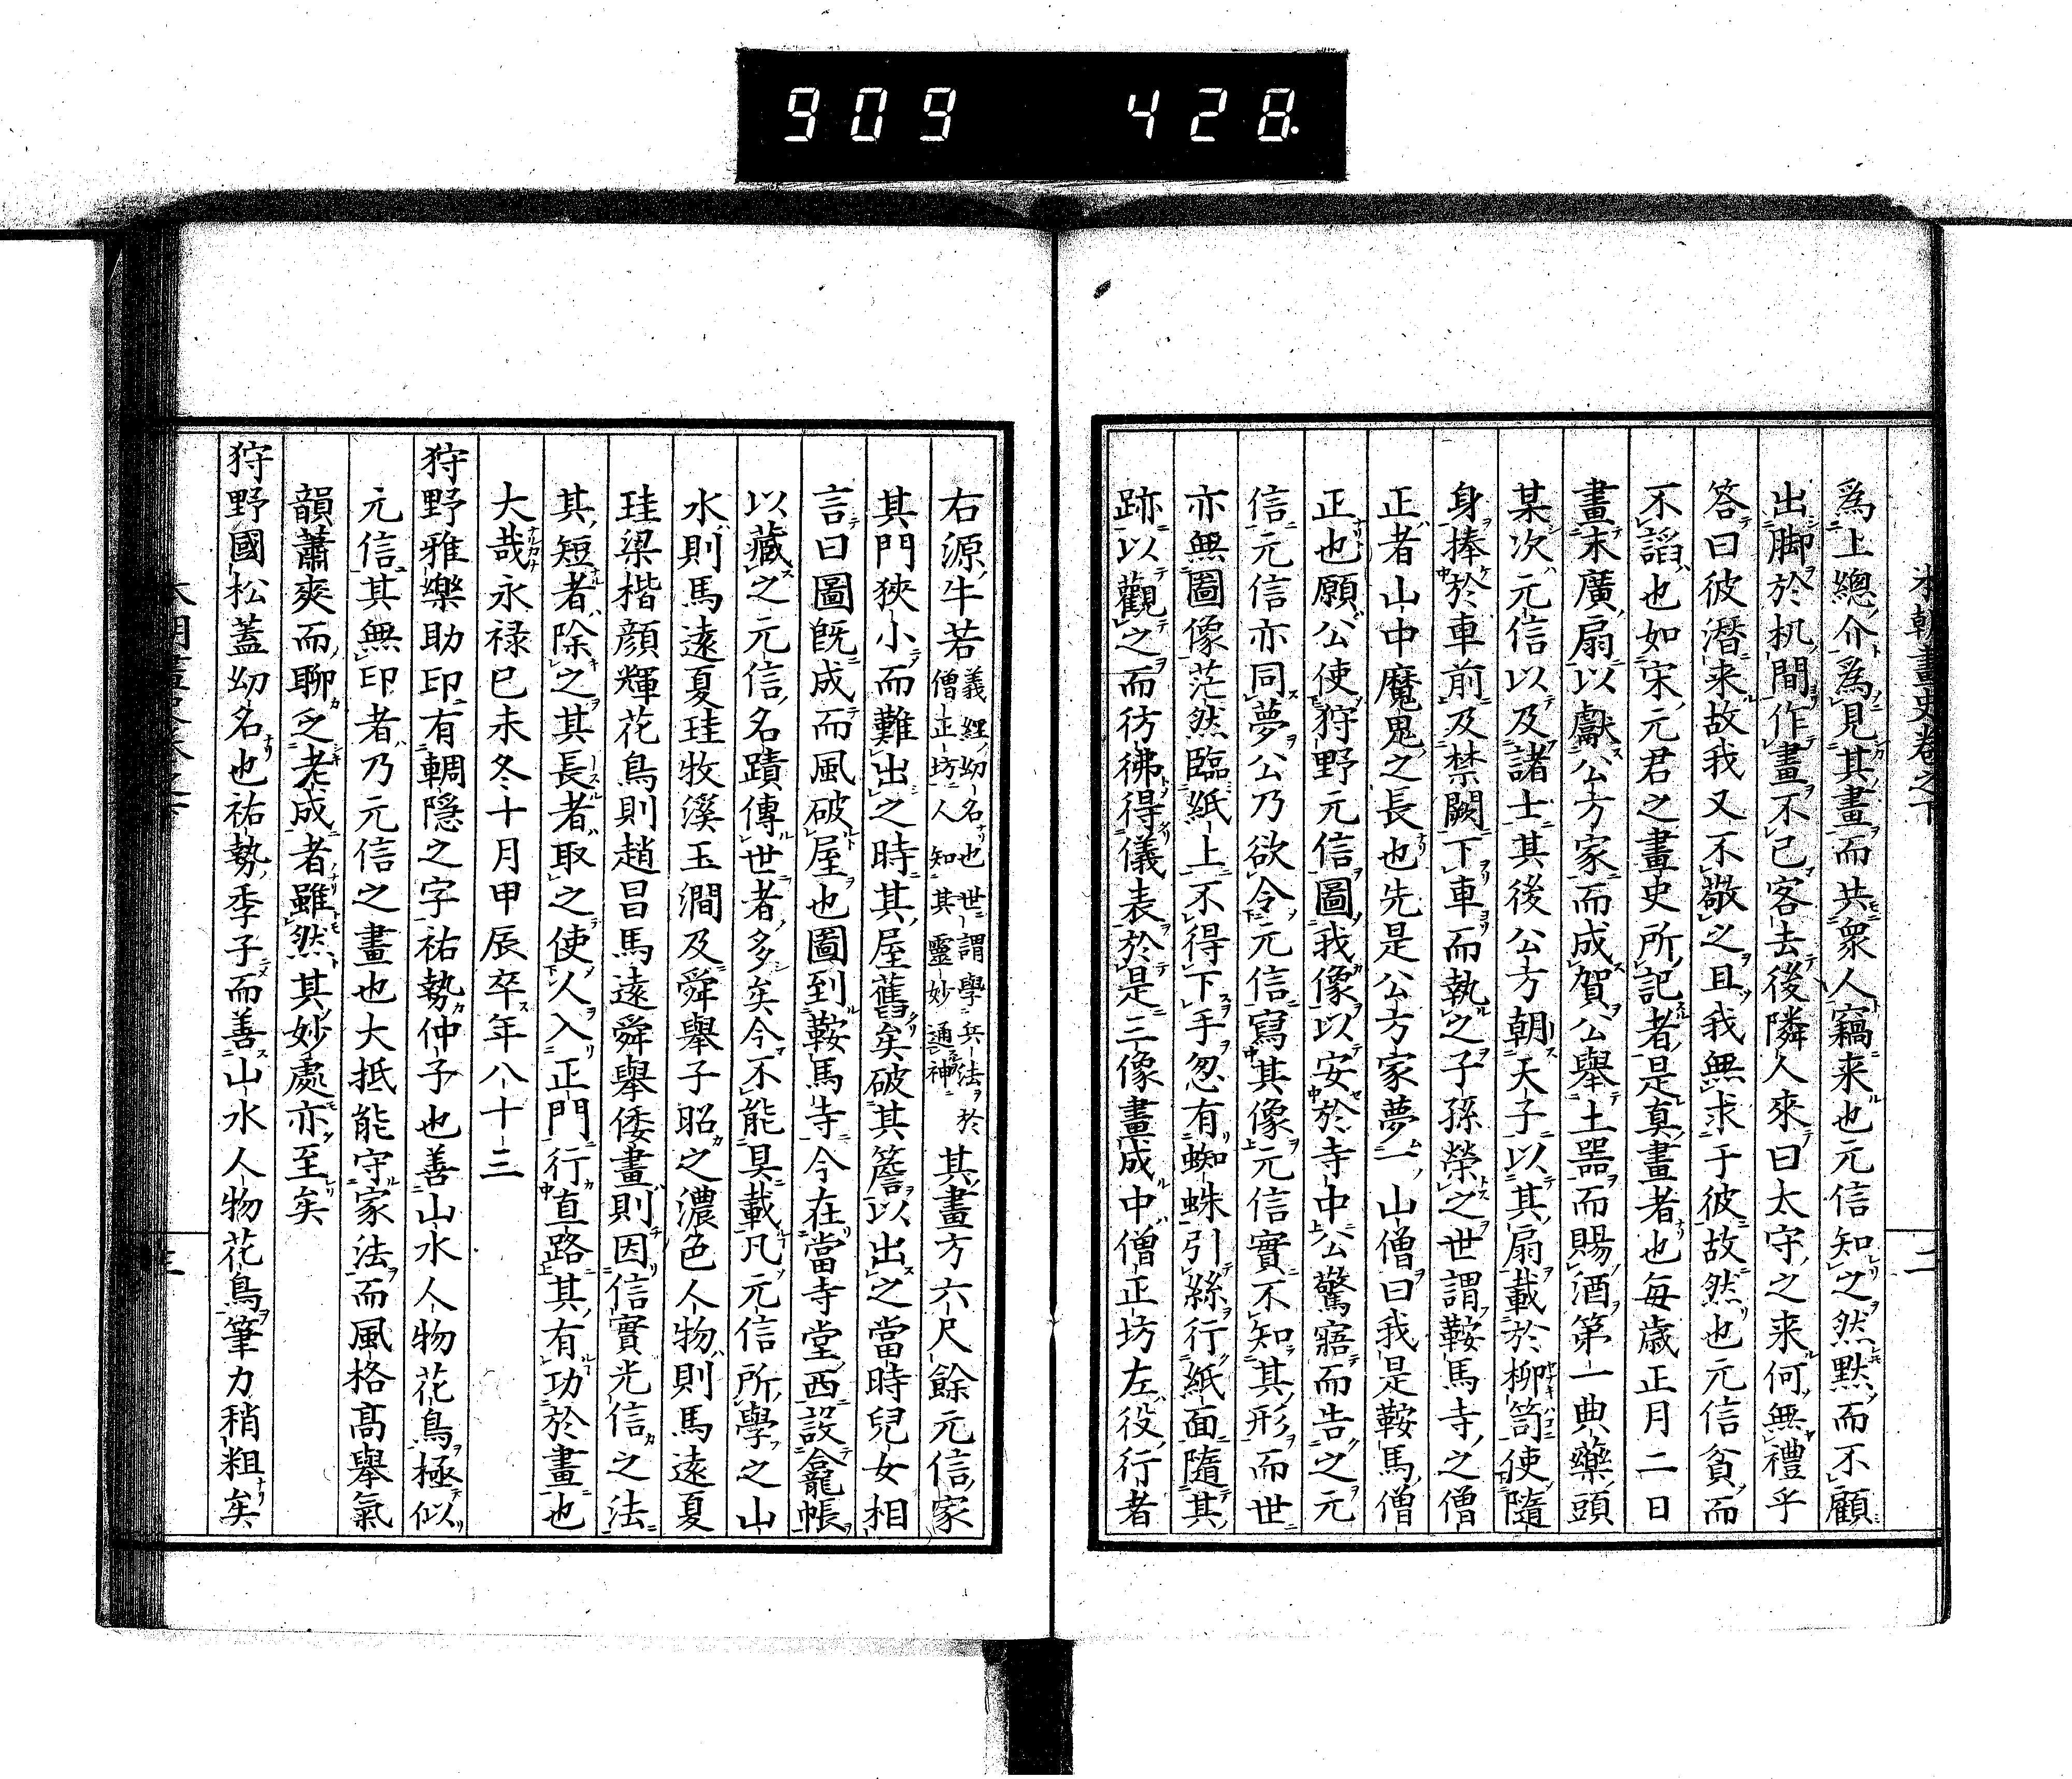 909 428.
本朝畫史卷之下
二
爲上總介爲見其畫而共衆人竊来也元信知之然黙而不顧
出脚於机間作畫不已客去後隣人來曰太守之来何無禮乎
答曰彼潜来故我又不敬之且我無求于彼故然也元信貧而
不謟也如宋元君之畫史所記者是真畫者也毎歳正月二日
畫末廣扇以獻公方家而成賀公舉土器而賜酒第一典藥頭
某次元信以及諸士其後公方朝天子以其扇載於柳笥使隨
身捧於車前及禁闕下車而執之子孫榮之世謂鞍馬寺之僧
正者山中魔鬼之長也先是公方家夢一山僧曰我是鞍馬僧
正也願公使狩野元信圖我像以安於寺中公驚寤而告之元
信元信亦同夢公乃欲令元信寫其像元信實不知其形而世
亦無圖像茫然臨紙上不得下手忽有蜘蛛引絲行紙面隨其
跡以觀之而彷彿得儀表於是三像畫成中僧正坊左役行者
右源牛若義經幼名也世謂學兵法於僧正坊人知其靈妙通神其畫方六尺餘元信家
其門狹小而難出之時其屋舊矣破其簷以出之當時兒女相
言曰圖既成而風破屋也圖到鞍馬寺今在當寺堂西設龕帳
以藏之元信名蹟傳世者多矣今不能具載凡元信所學之山
水則馬遠夏珪牧溪玉澗及舜舉子昭之濃色人物則馬遠夏
珪梁楷顔輝花鳥則趙昌馬遠舜舉倭畫則因信實光信之法
其短者除之其長者取之使人入正門行直路其有功於畫也
大哉永禄己未冬十月甲辰卒年八十三
狩野雅樂助印有輞隠之字祐勢仲子也善山水人物花鳥極似
元信其無印者乃元信之畫也大抵能守家法而風格高舉氣
韻蕭爽而聊乏老成者雖然其妙處亦至矣
狩野國松蓋幼名也祐勢季子而善山水人物花鳥筆力稍粗矣